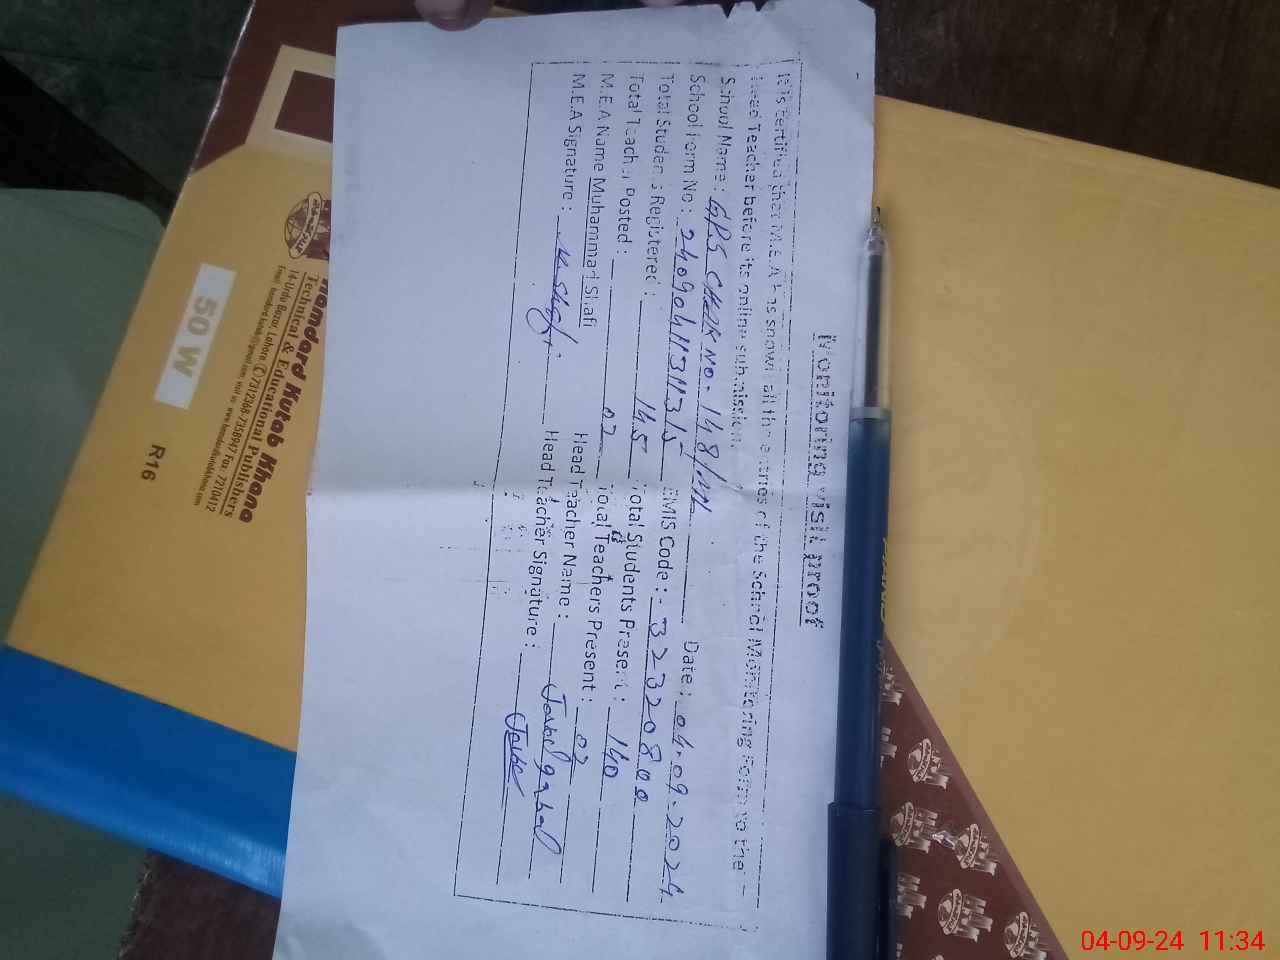 Monitoring visit proof
It is certified that M.E.A has shown all the entries of the School Monitoring Form to the
Head Teacher before its online submission.
School Name: GPS CHAK NO. 148/ML Date: 04.09.2024
School Form No: EMIS Code:- 32320800
Total Students Registered: 145 Total Students Present: 140
Total Teacher Posted: 02 Total Teachers Present: 02
M.E.A Name Muhammad Shafi Head Teacher Name:
M.E.A Signature: M. Shafi Head Teacher Signature:
Hamdard Kutab Khana
Technical & Educational Publishers
14-Urdu Bazar, Lahore. 7312368-7358947 Fax: 7210412
50 W
R16
04-09-24 11:34